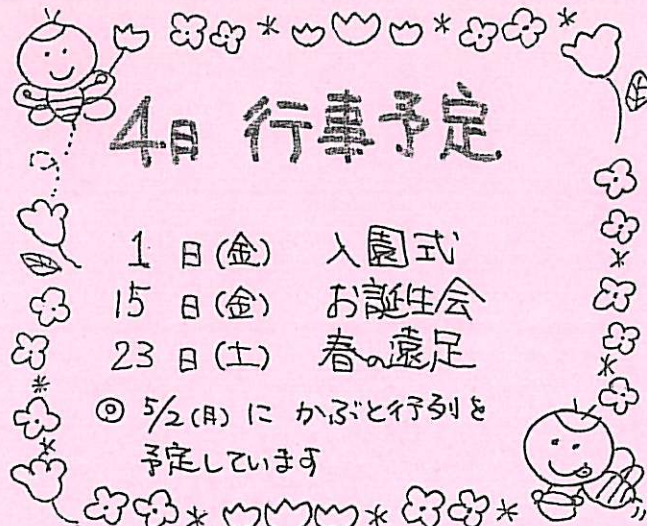 4月 行事予定
1 日(金) 入園式
15 日(金) お誕生会
23 日(土) 春の遠足
◎ 5/2(月) に かぶと行列を
予定しています